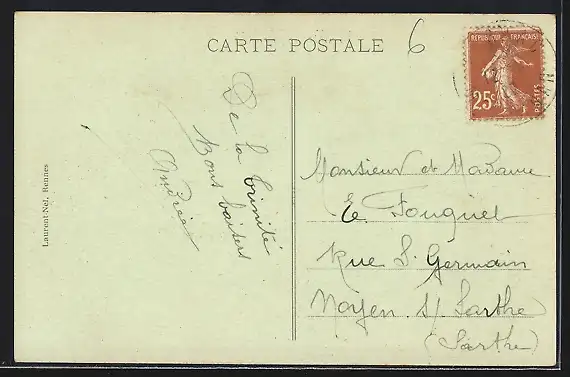 CARTE POSTALE
6
REPUBLIQUE FRANÇAISE
25c
POSTES
De la Trinité
Bons baisers
Andrée
Monsieur et Madame
E. Fouquet
Rue S. Germain
Noyen S/ Sarthe
(Sarthe)
Laurent-Nel, Rennes